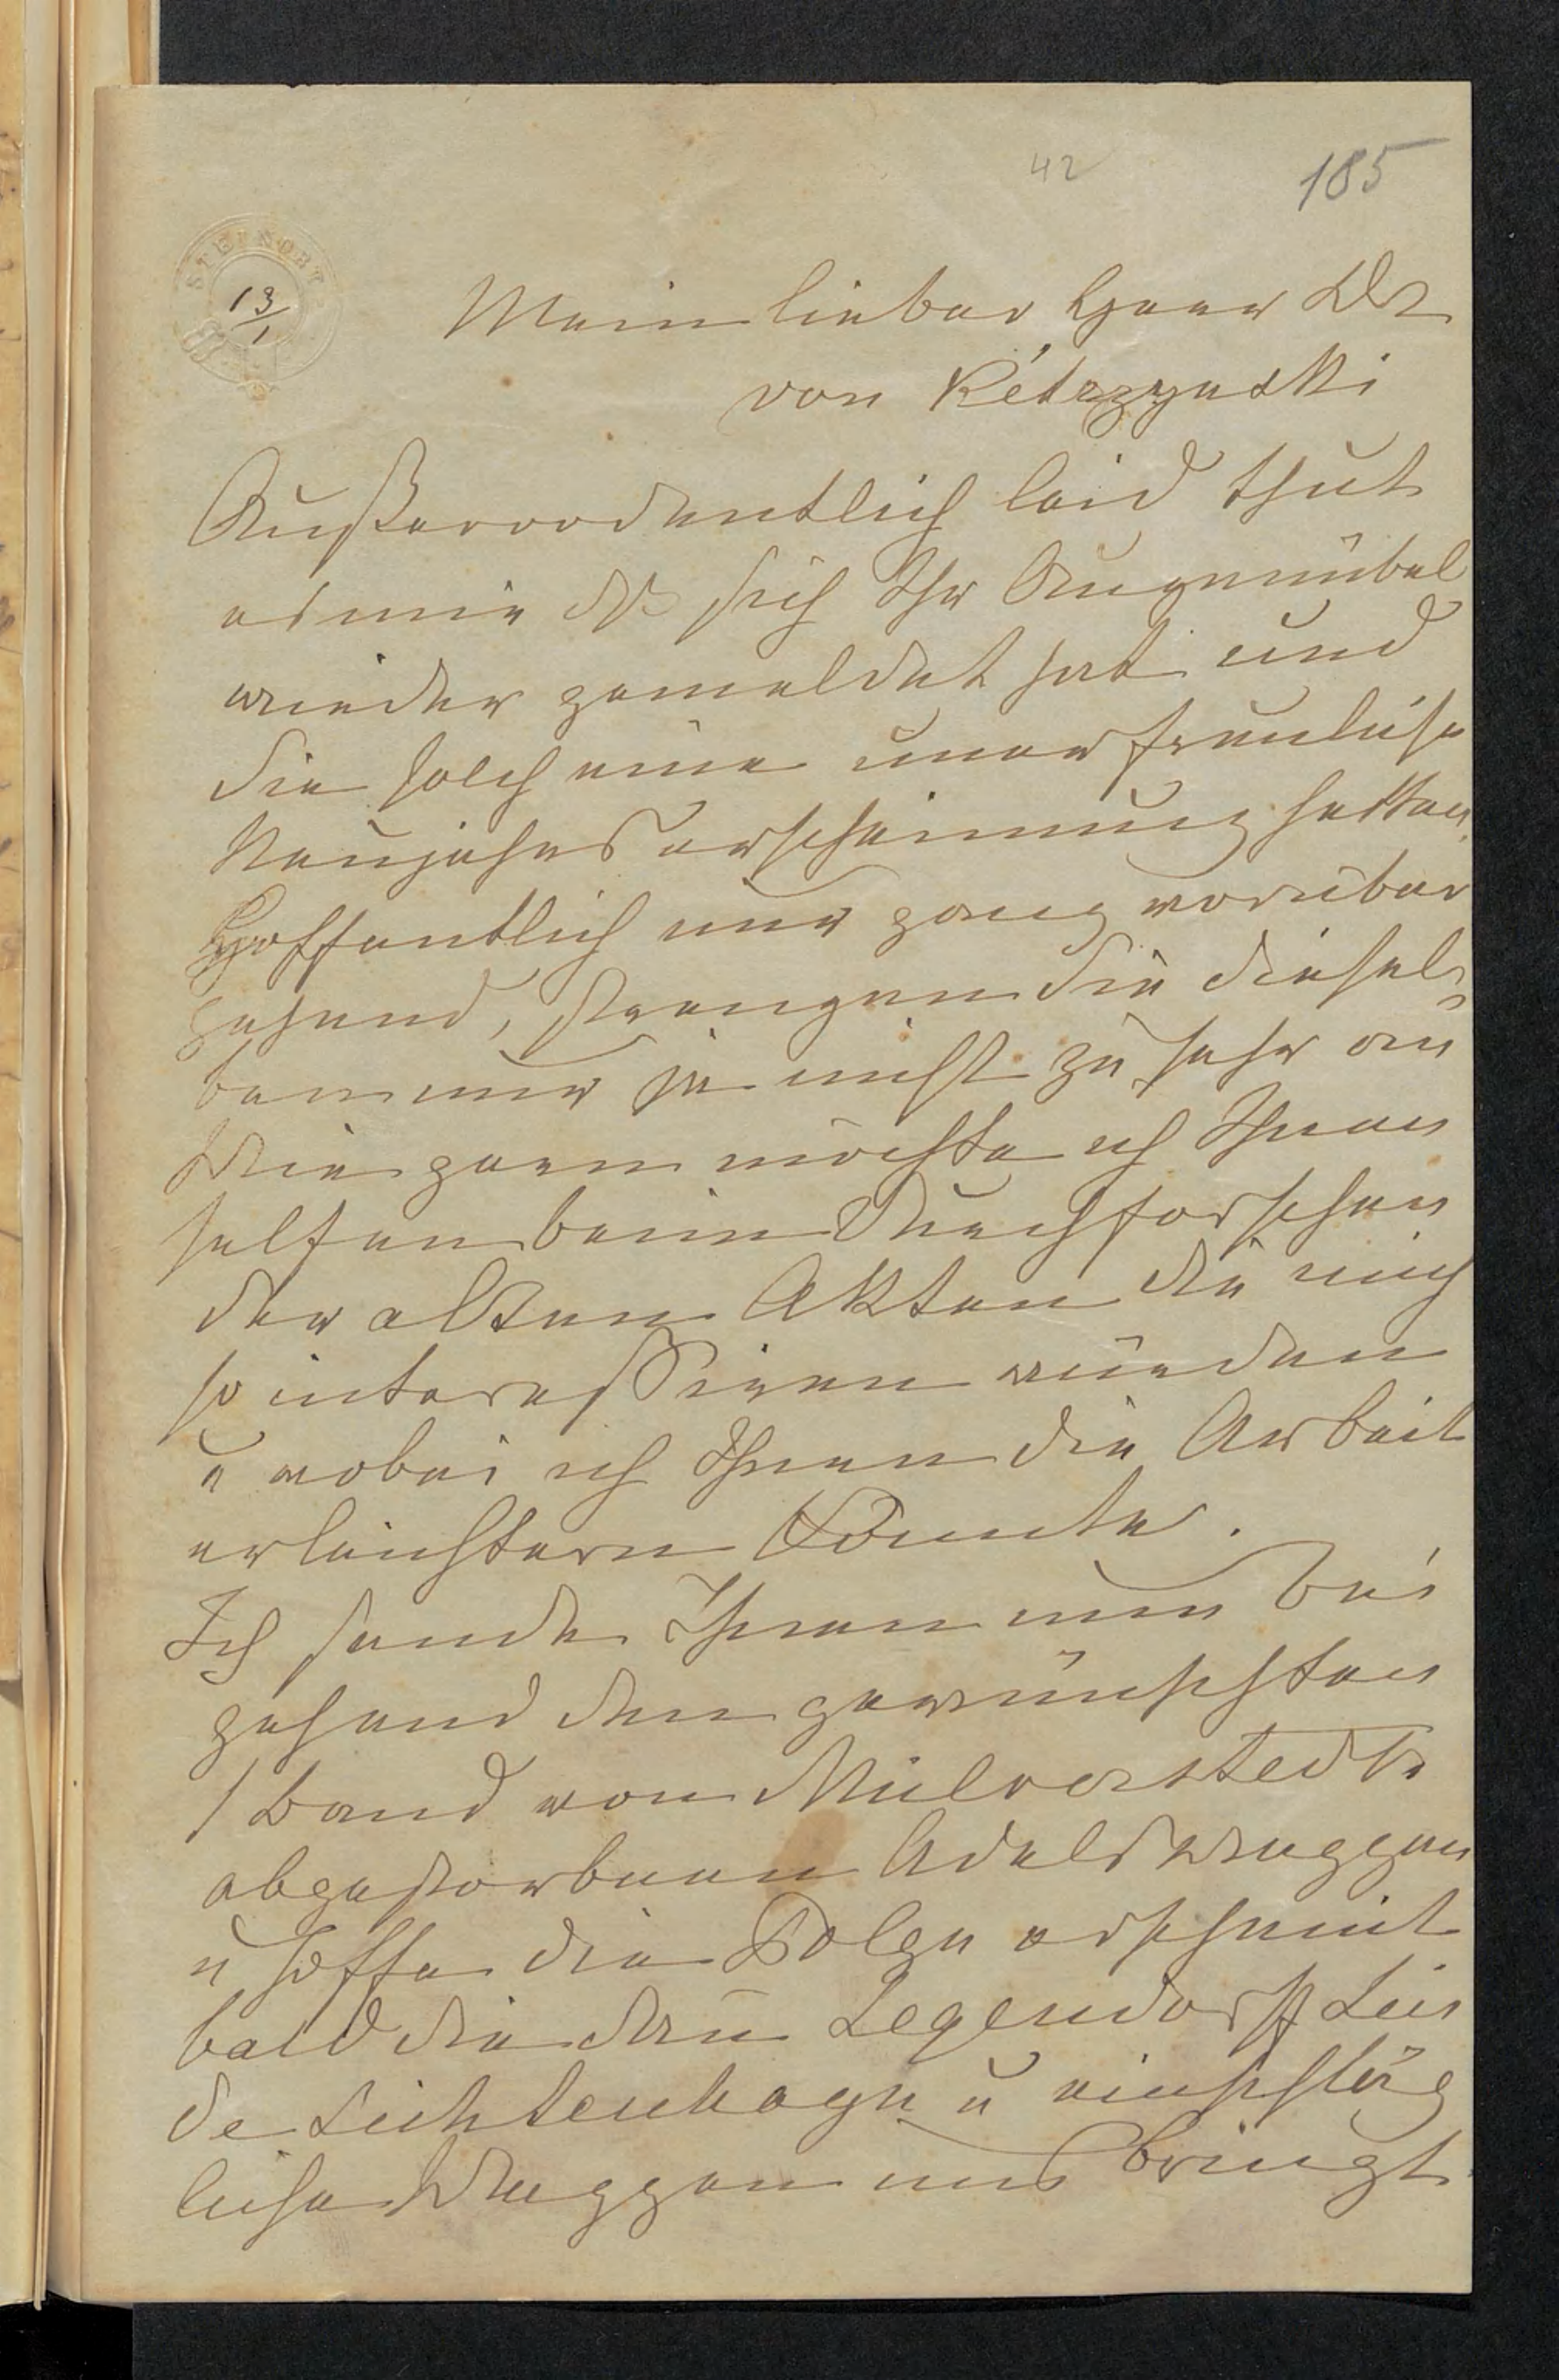 42
185
STEINORT
13/1
Mein lieber Herr Dr
von Kétrzynski
Außerordentlich leid thut
es mir dß sich Ihr Augenübel
wieder gemeldet hat und
Sie solch eine unerfreuliche
Neujahrserscheinung hatten.
Hoffentlich nur ganz vorüber
gehend, strengen Sie diesel¬
ben nur ja nicht zu sehr an
Wie gern möchte ich Ihnen
helfen beim Durchforschen
der alten Akten die mich
so interessiren würden
u wobei ich Ihnen die Arbeit
erleichtern könnte.
Ich sende Ihnen nun bei
gehend den gewünschten
1 Band von Mülverstedts
abgestorbenen Adelswappen
u hoffe die Folge erscheint
bald die dan Legendorff Lin
de Lichtenhagn u einschläg
liche Wappen uns bringt